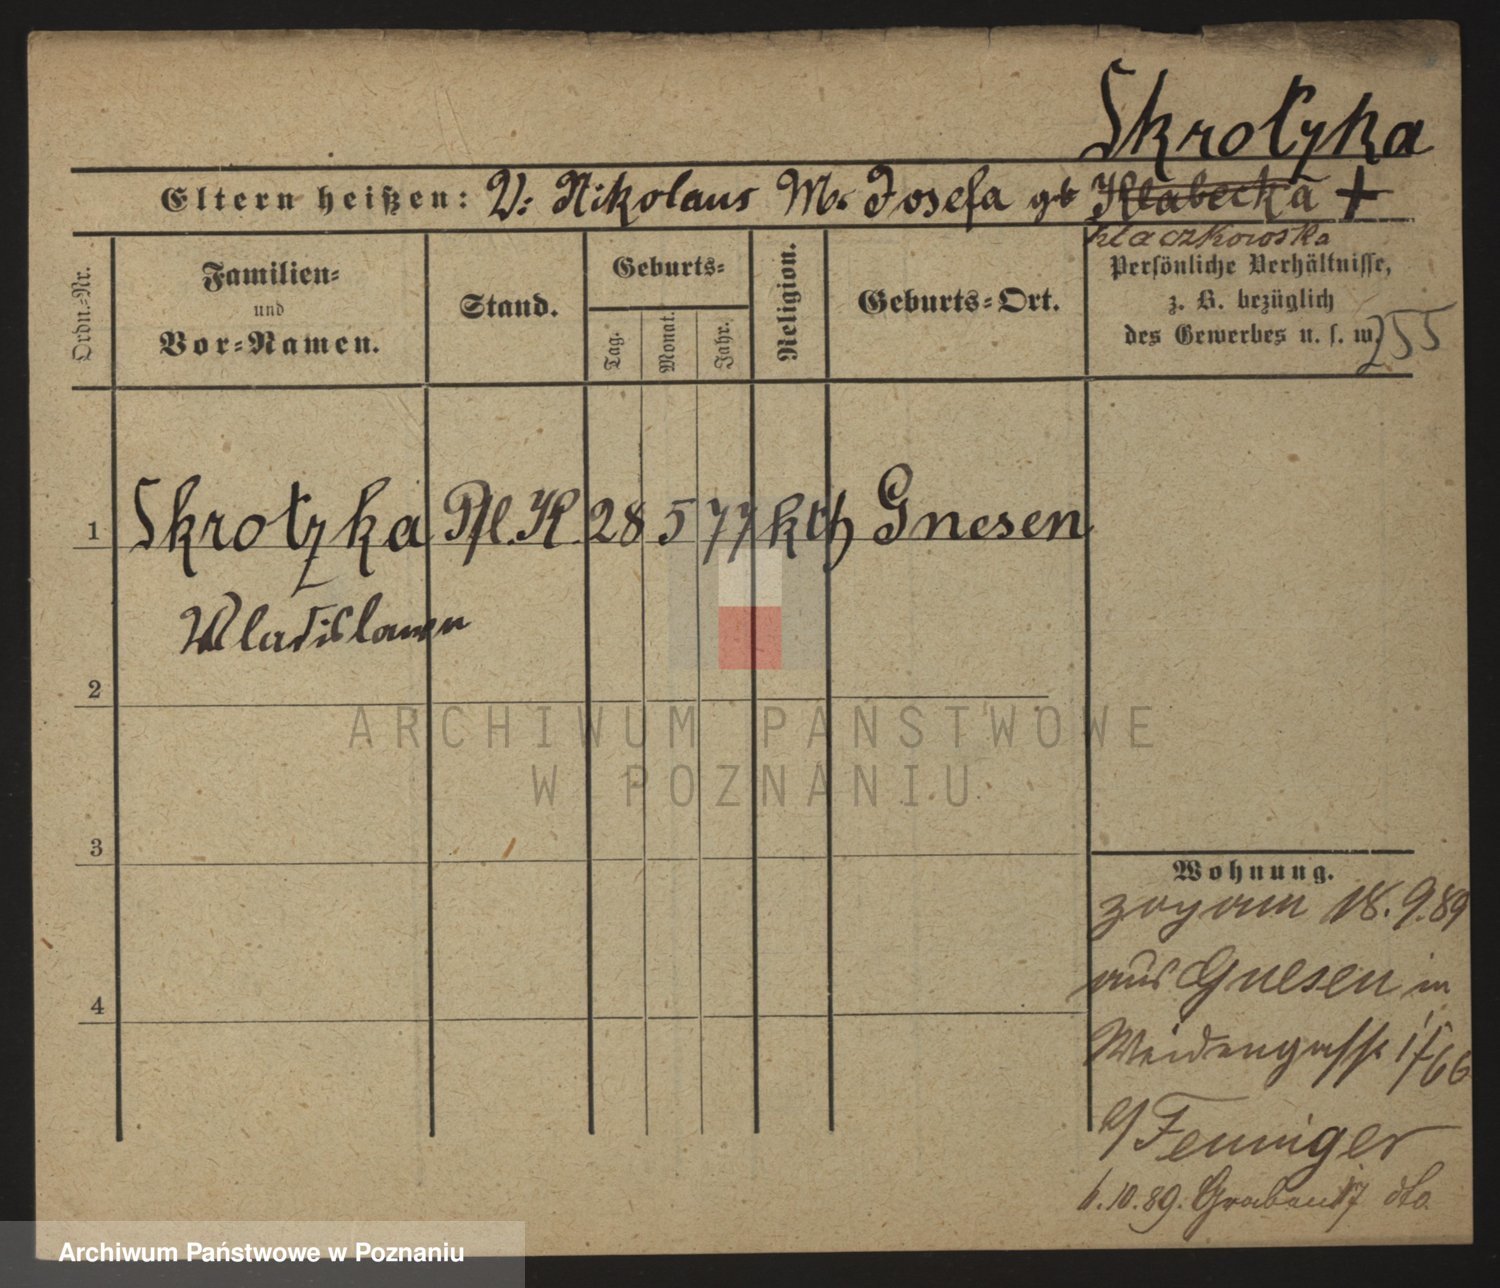 Skrotzka
Eltern heißen: V: Nikolaus M. Josefa gb Klabecka +
Klaczkowska
Ordn.=Nr.
Familien=
und
Vor=Namen.
Stand.
Geburts=
Tag.
Monat.
Jahr.
Religion.
Geburts=Ort.
Persönliche Verhältnisse,
z. B. bezüglich
des Gewerbes u. s. w.
255
1 Skrotzka Pfl. K. 28 5 77 kth Gnesen
Wladislawa
2
3
4
Wohnung.
zog am 18.9.89
aus Gnesen in
Weidengasse
b/ Fenniger
6.10.89. Graben 17 dto.
ARCHIWUM PAŃSTWOWE
W POZNANIU
Archiwum Państwowe w Poznaniu